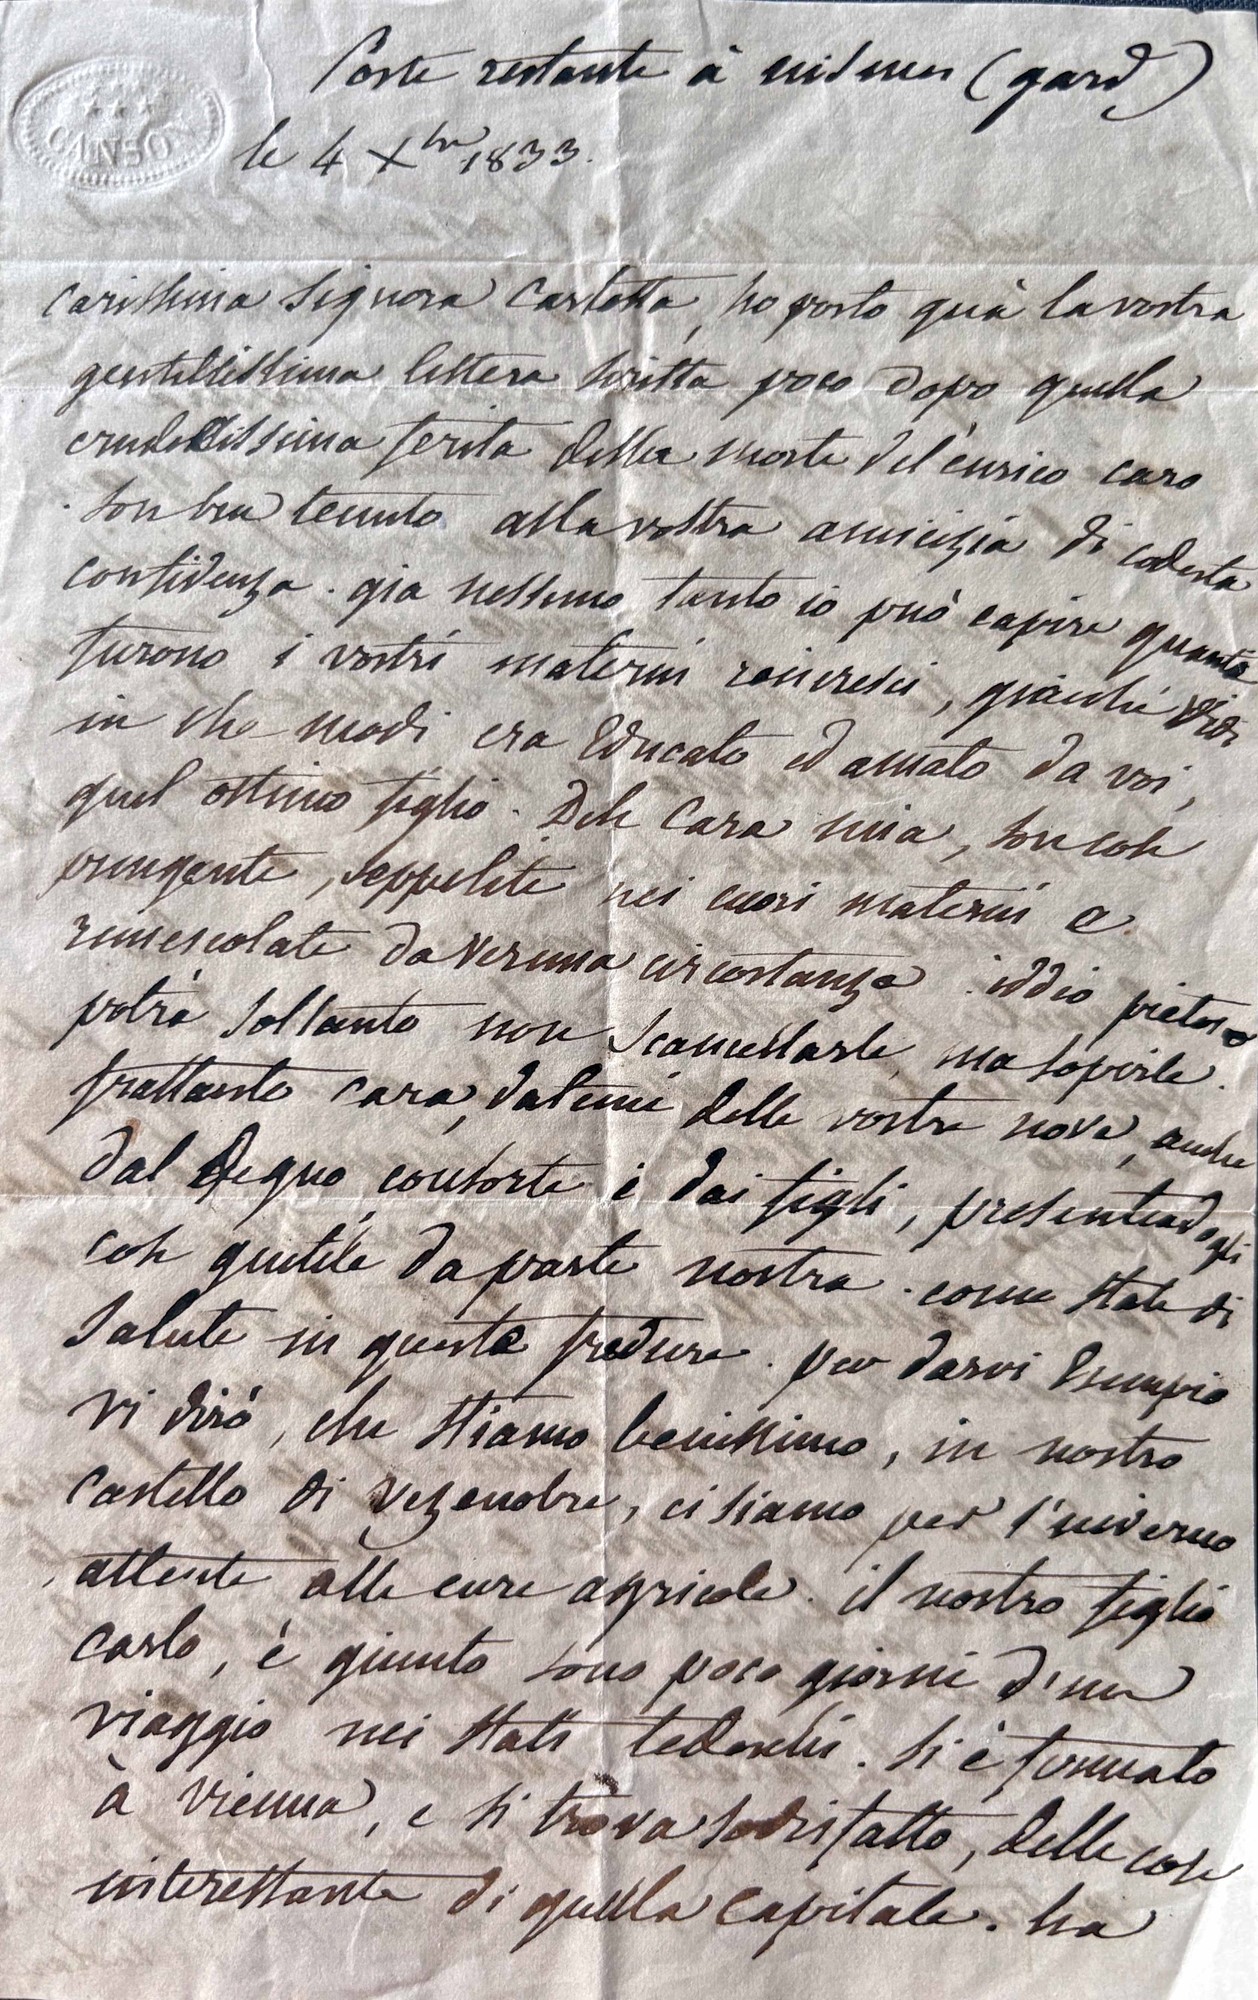 CANSON
Poste restante à nismes (gard)
le 4 Xbre 1833.
carissima Signora Carlotta, ho posto quà la vostra
gentilissima lettera scritta poco dopo quella
crudelissima ferita della morte del'enrico caro
son ben tenuto alla vostra amicizia di codesta
confidenza. gia nessuno tanto io può capire quanto
furono i vostri materni rincresci, giacché vidi
in che modi era Educato ed amato da voi,
quel ottimo figlio. Deh Cara mia, son cose
pungente, seppelite nei cuori materni e
rimescolate da veruna circostanza. iddio pietoso
potrà soltanto non scancellarle, ma sopirle.
frattanto cara, datemi delle vostre nove, anche
dal Degno consorte e dai figli, presentandogli
cose gentile da parte nostra. come state di
Salute in queste fredure. per darvi Esempio
vi dirò, che stiamo benissimo, in nostro
castello di Vezenobre, ci siamo per l'inverno
attente alle cure agricole. il nostro figlio
Carlo, è giunto sono poco giorni d'un
viaggio nei Stati tedeschi. si è formato
à vienna, e si trova sodisfatto, delle cose
interessante di quella capitale. ha